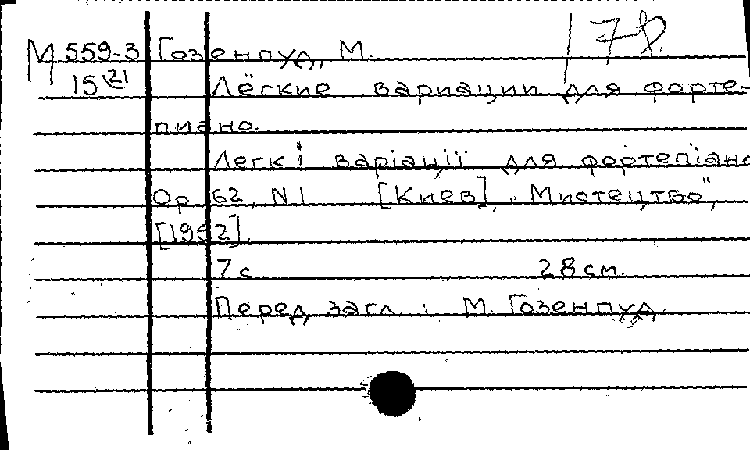 М 559-3 Гозенпуд, М. 178
15 21 Лёгкие вариации для форте-
пиано.
Легкі варіації для фортепіано
Ор. 62, N 1 [Киев], „Мистецтво",
[1952].
7 с 28 см.
Перед загл. : М. Гозенпуд.